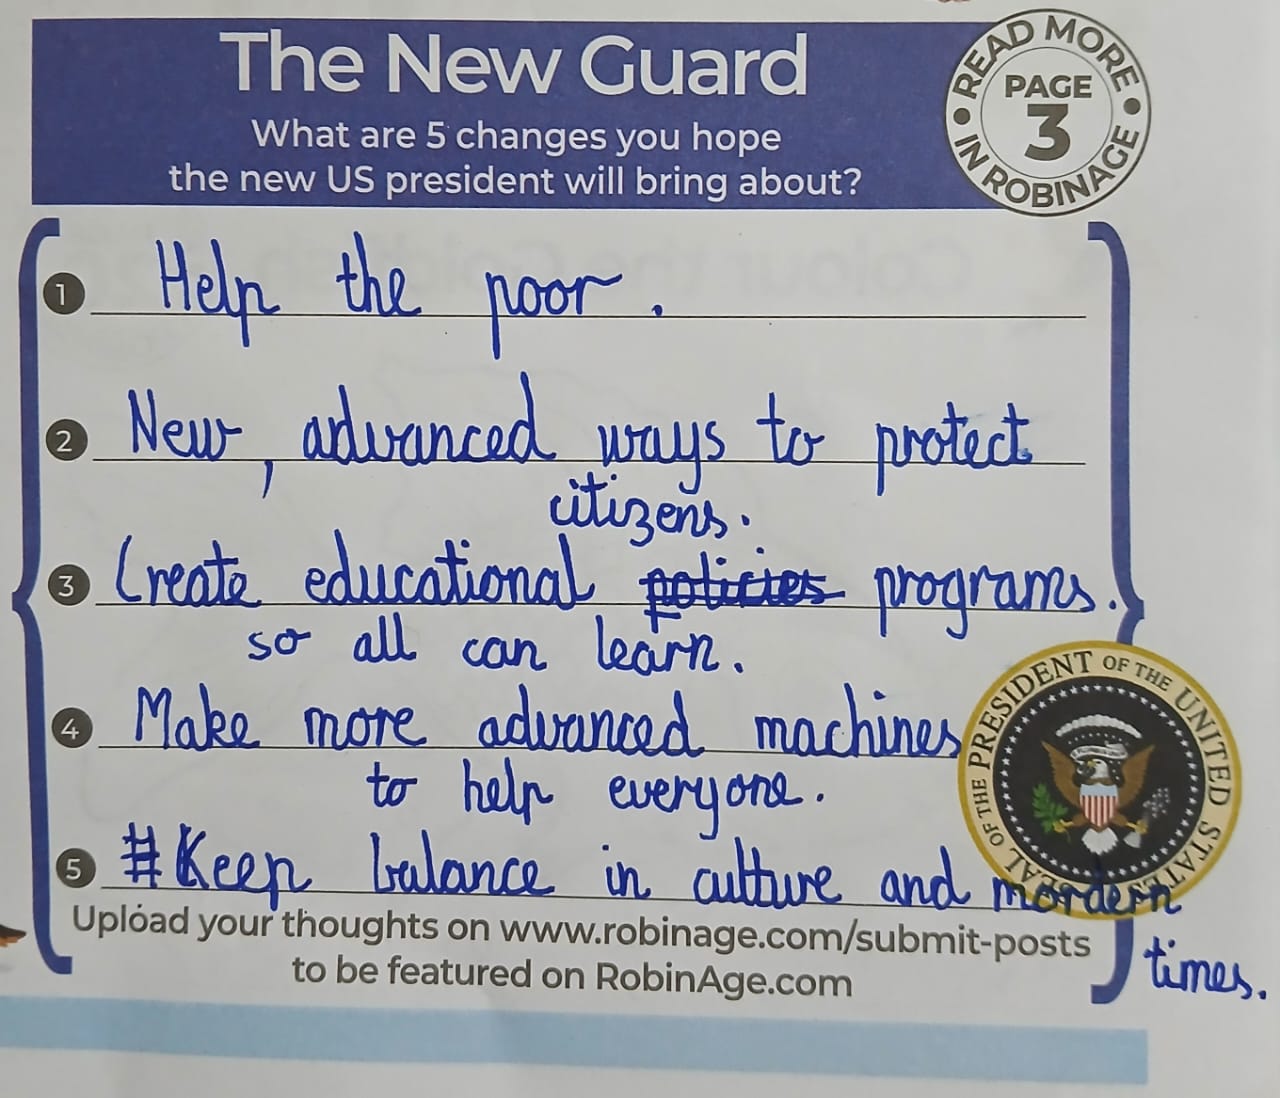 The New Guard
What are 5 changes you hope
the new US president will bring about?
READ MORE
PAGE
3
IN ROBINAGE
1 Help the poor.
2 New, advanced ways to protect
citizens.
3 Create educational policies programs.
so all can learn.
4 Make more advanced machines
to help everyone.
SEAL OF THE PRESIDENT OF THE UNITED STATES
5 #Keep balance in culture and mordern
times.
Upload your thoughts on www.robinage.com/submit-posts
to be featured on RobinAge.com